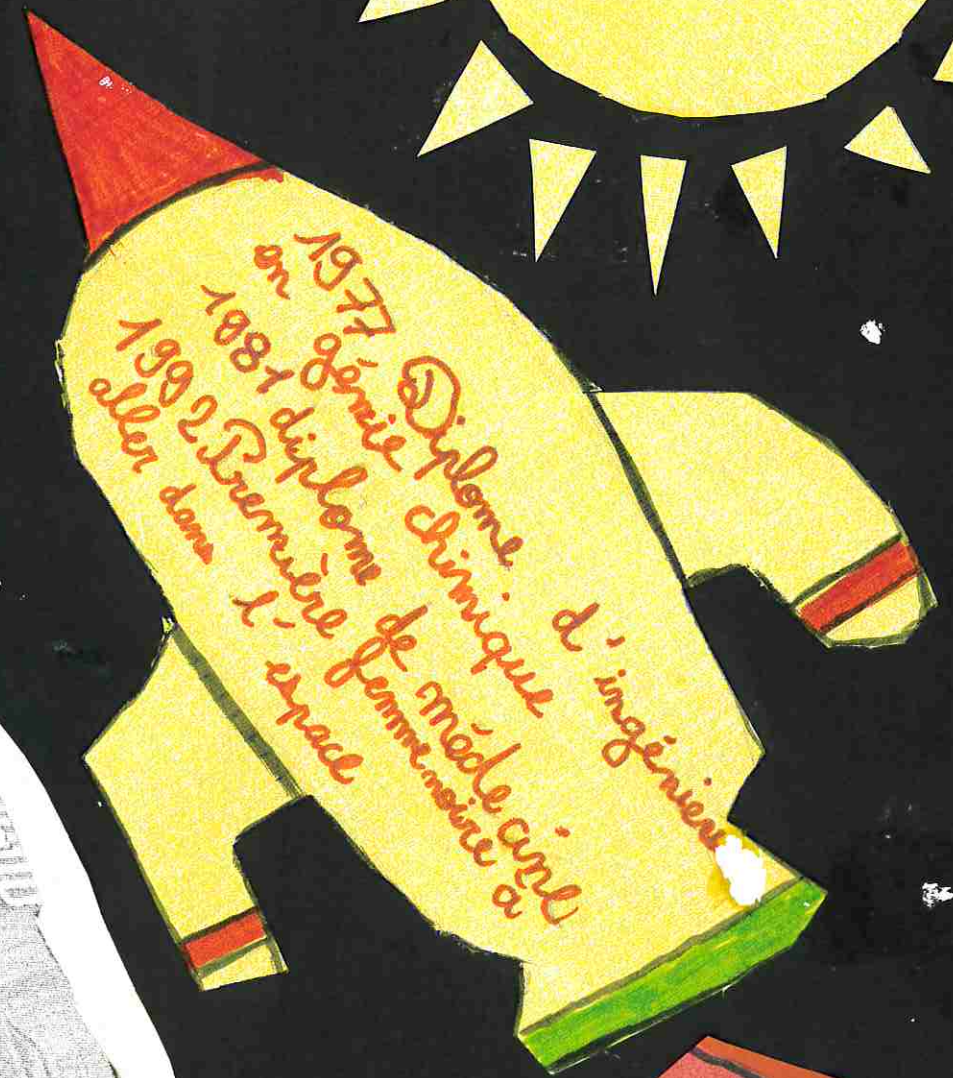 1977 Diplome d'ingénieur
en génie chimique
1981 diplome de médecine
1992 Première femme noire à
aller dans l'espace